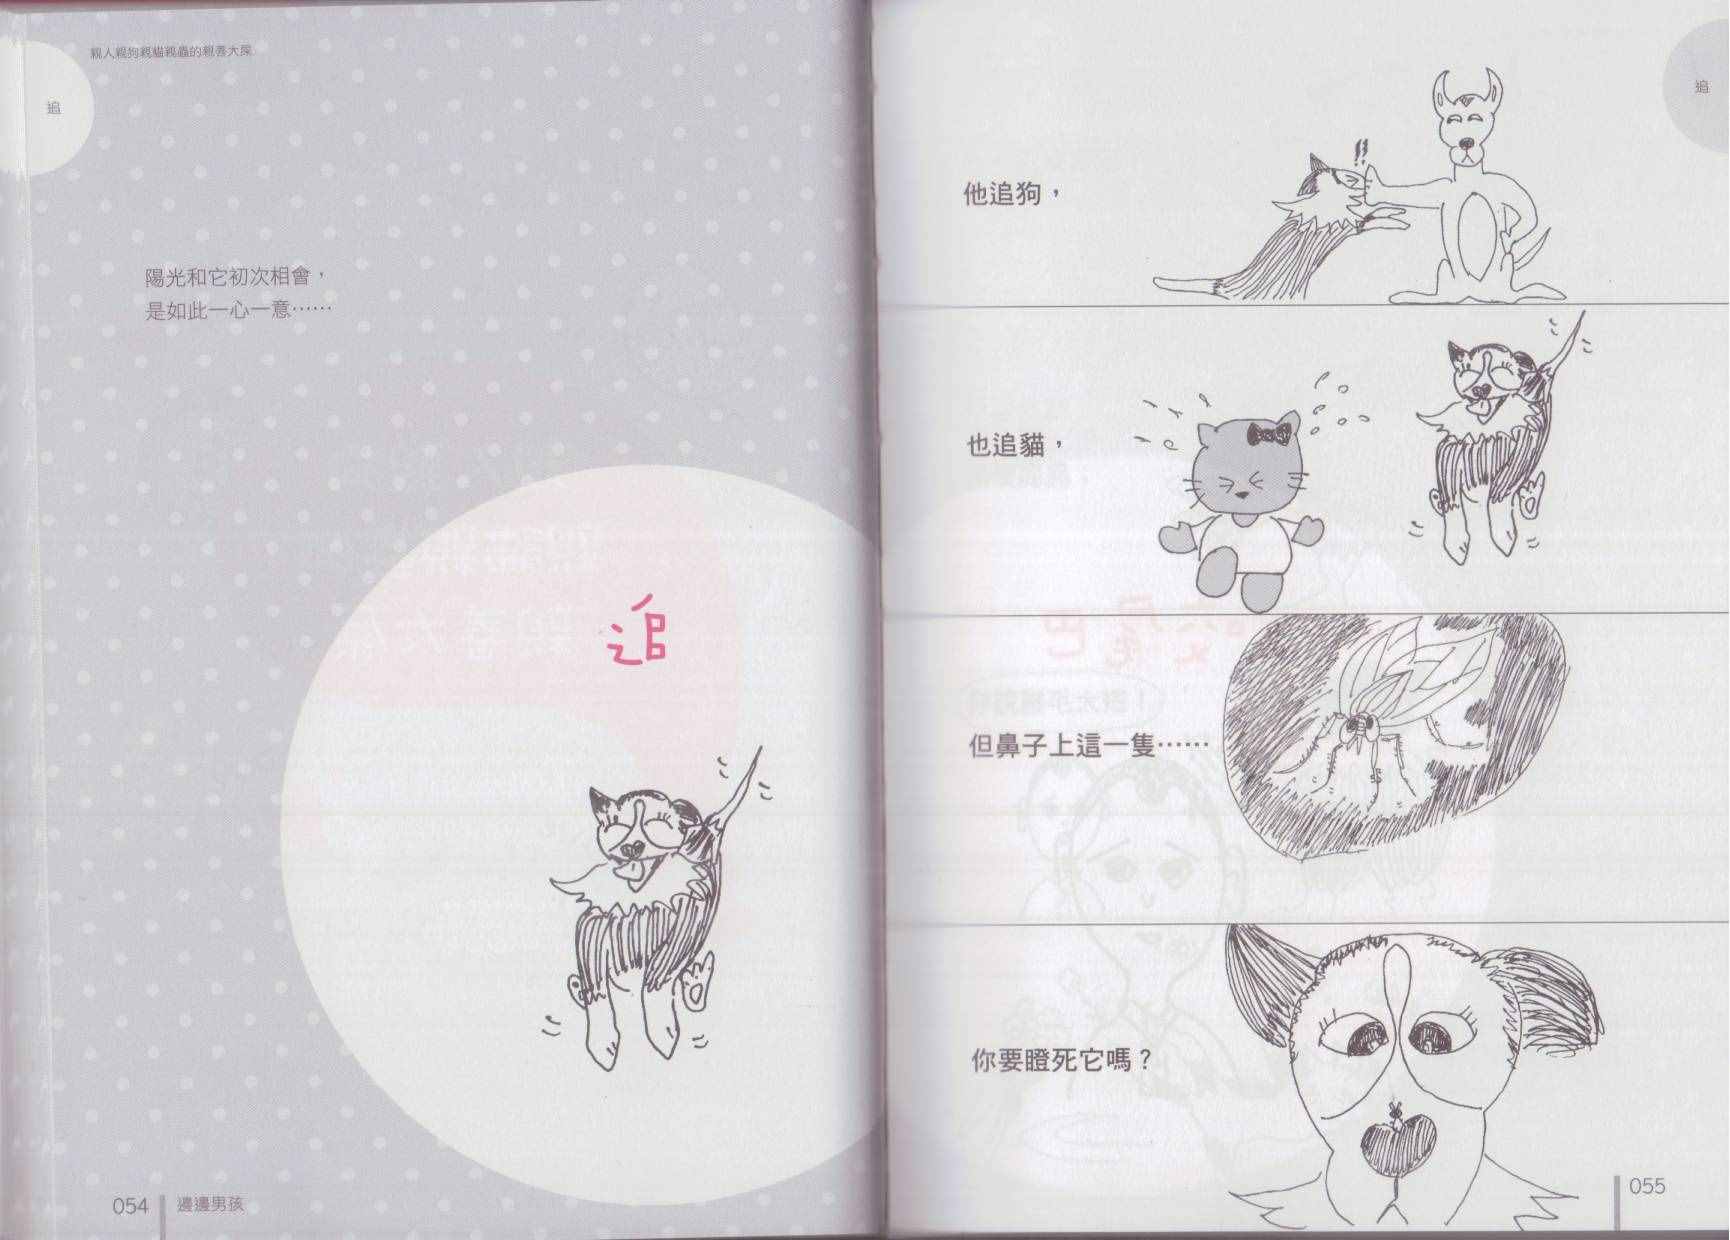 親人親狗親貓親蟲的親善大屎
追
陽光和它初次相會，
是如此一心一意……
追
054
邊邊男孩
追
他追狗，
!!
也追貓，
但鼻子上這一隻……
你要瞪死它嗎？
055